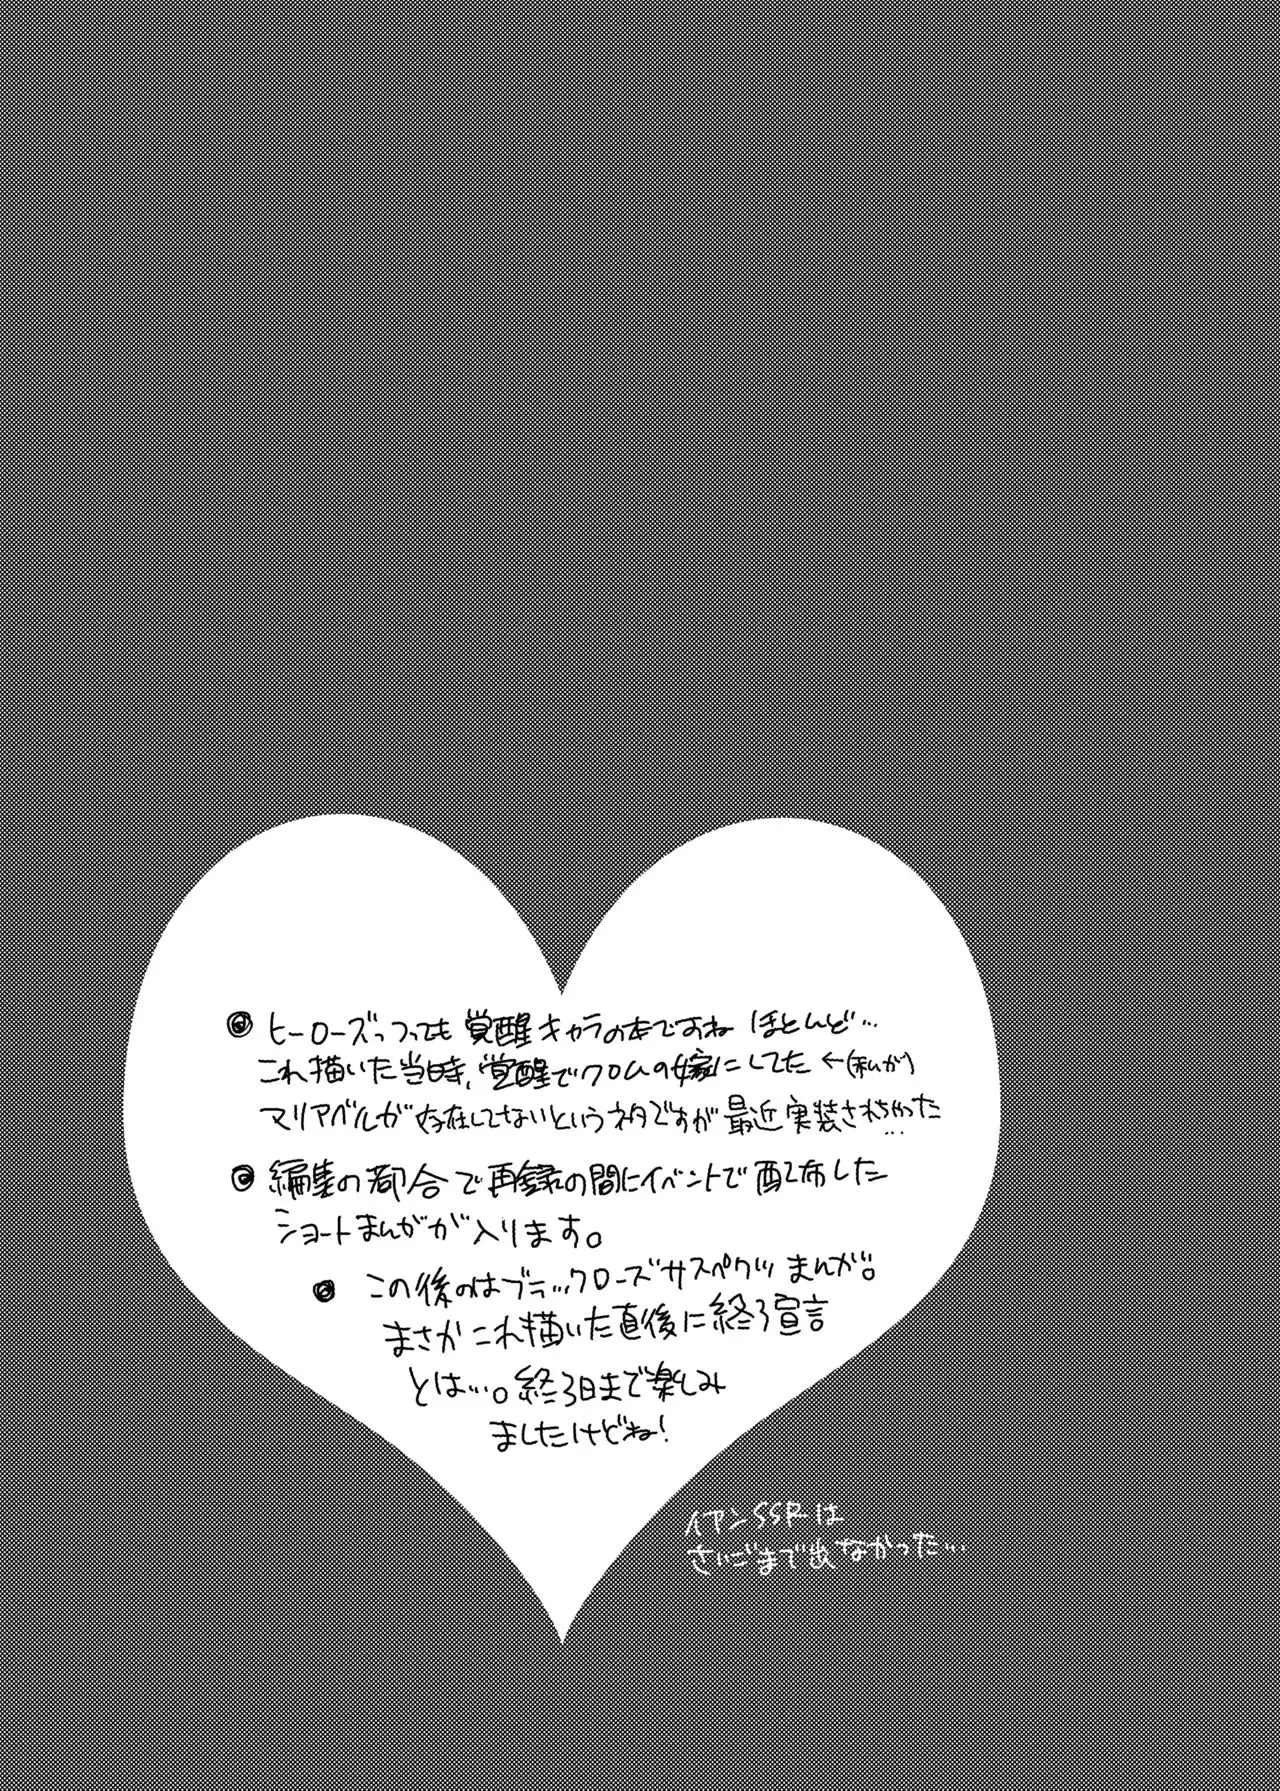 ◎ ヒーローズっつっても 覚醒キャラの本ですね ほとんど…
これ描いた当時、覚醒でクロムの嫁にしてた ←(私が)
マリアベルが存在してないというネタですが 最近実装されちゃった…
◎ 編集の都合で再録の間にイベントで配布した
ショートまんがが入ります。
◎ この後のはブラックローズサスペクツまんが。
まさかこれ描いた直後に終了宣言
とは…。終了日まで楽しみ
ましたけどね!
イヤンSSRは
さいごまで出なかった…